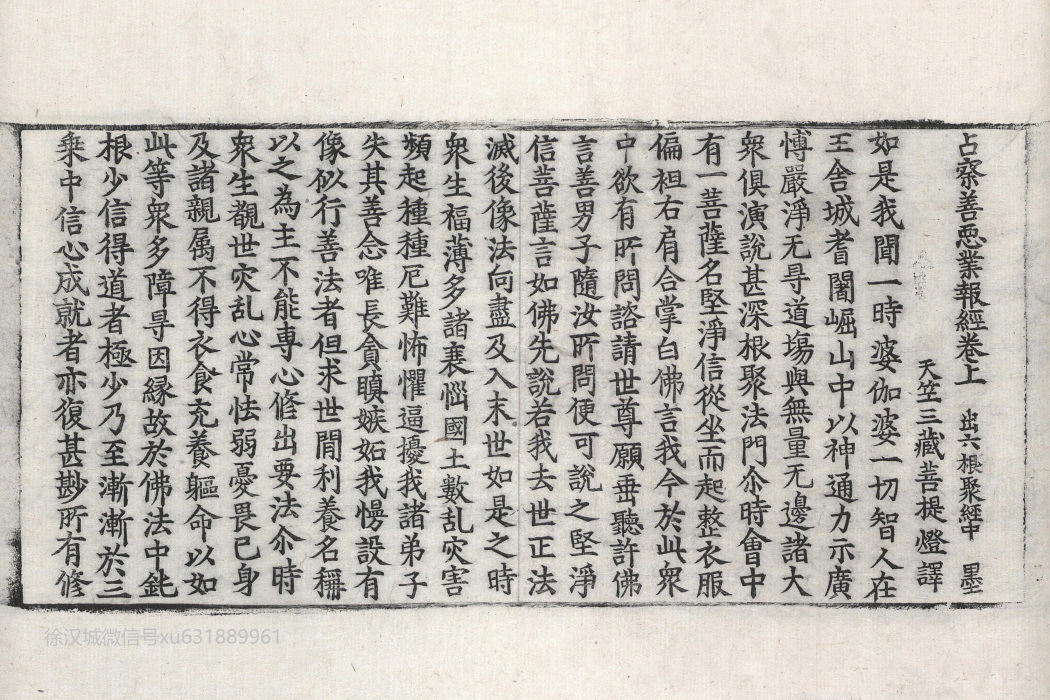 占察善惡業報經卷上 出六根聚經中 墨
天竺三藏菩提燈譯
如是我聞一時婆伽婆一切智人在
王舍城耆闍崛山中以神通力示廣
愽嚴淨无㝵道塲與無量无邊諸大
衆俱演說甚深根聚法門尒時會中
有一菩薩名堅淨信從坐而起整衣服
偏袒右肩合掌白佛言我今於此衆
中欲有所問諮請世尊願垂聽許佛
言善男子隨汝所問便可說之堅淨
信菩薩言如佛先說若我去世正法
滅後像法向盡及入末世如是之時
衆生福薄多諸衰惱國土數乱灾害
頻起種種厄難怖懼逼擾我諸弟子
失其善念唯長貪瞋嫉妬我慢設有
像似行善法者但求世間利養名稱
以之為主不能專心修出要法尒時
衆生覩世灾乱心常怯弱憂畏己身
及諸親属不得衣食充養軀命以如
此等衆多障㝵因縁故於佛法中鈍
根少信得道者極少乃至漸漸於三
乗中信心成就者亦復甚尠所有修
徐汉城微信号xu631889961